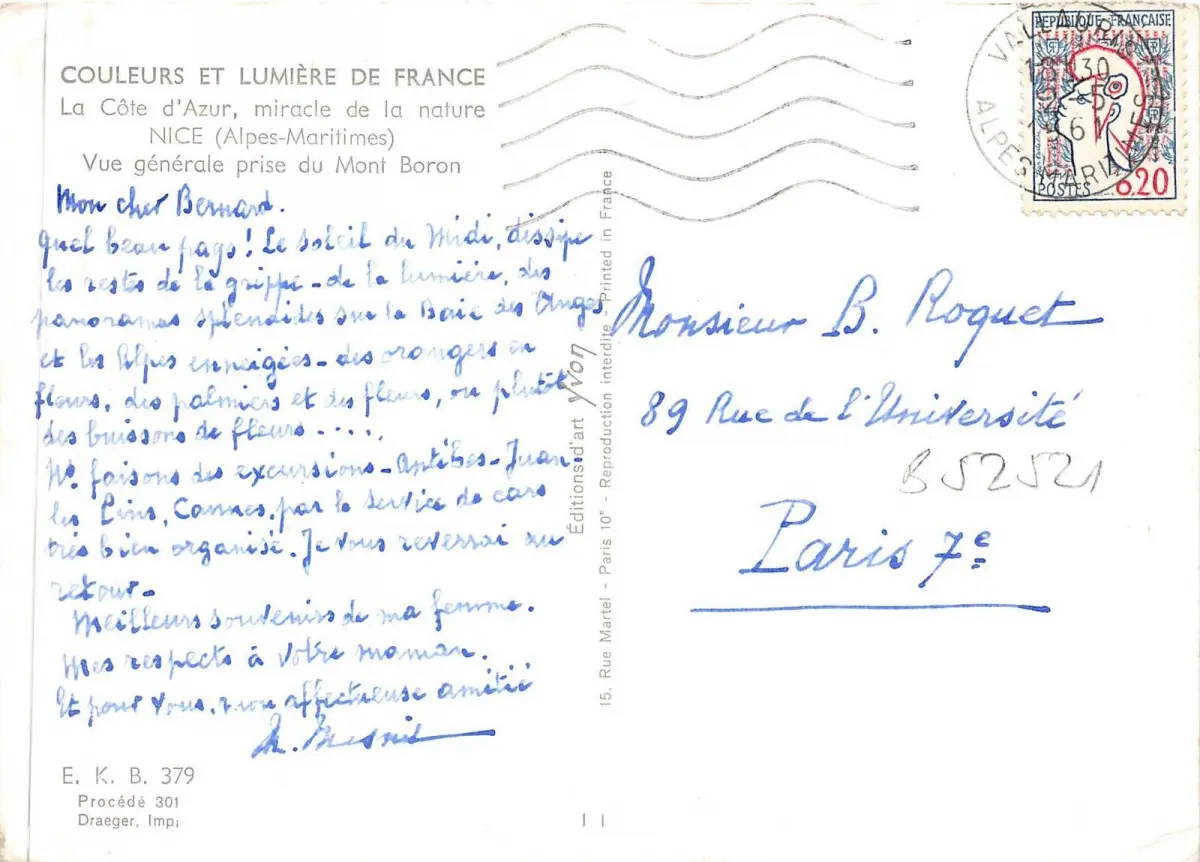 COULEURS ET LUMIÈRE DE FRANCE
La Côte d'Azur, miracle de la nature
NICE (Alpes-Maritimes)
Vue générale prise du Mont Boron
Mon cher Bernard.
Quel beau pays! Le soleil du Midi, dissipe
les restes de la grippe - de la lumière, des
panoramas splendides sur la Baie des Anges
et les Alpes enneigées - des orangers en
fleurs, des palmiers et des fleurs, ou plutôt
des buissons de fleurs .....
Ns. faisons des excursions - Antibes - Juan-
les Pins, Cannes, par le service de cars
très bien organisé. Je vous reverrai au
retour -
Meilleurs souvenirs de ma femme.
Mes respects à votre maman.
Et pour vous, mon affectueuse amitié
E. K. B. 379
Procédé 301
Draeger, Imp.
Éditions d'art yvon
15, Rue Martel - Paris 10e - Reproduction interdite - Printed in France
VALLAURIS
ALPES-MARITIMES
RÉPUBLIQUE FRANÇAISE
POSTES 0,20
Monsieur B. Roquet
89 Rue de l'Université
B52521
Paris 7e